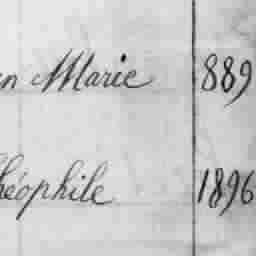 en Marie 889
héophile 1896